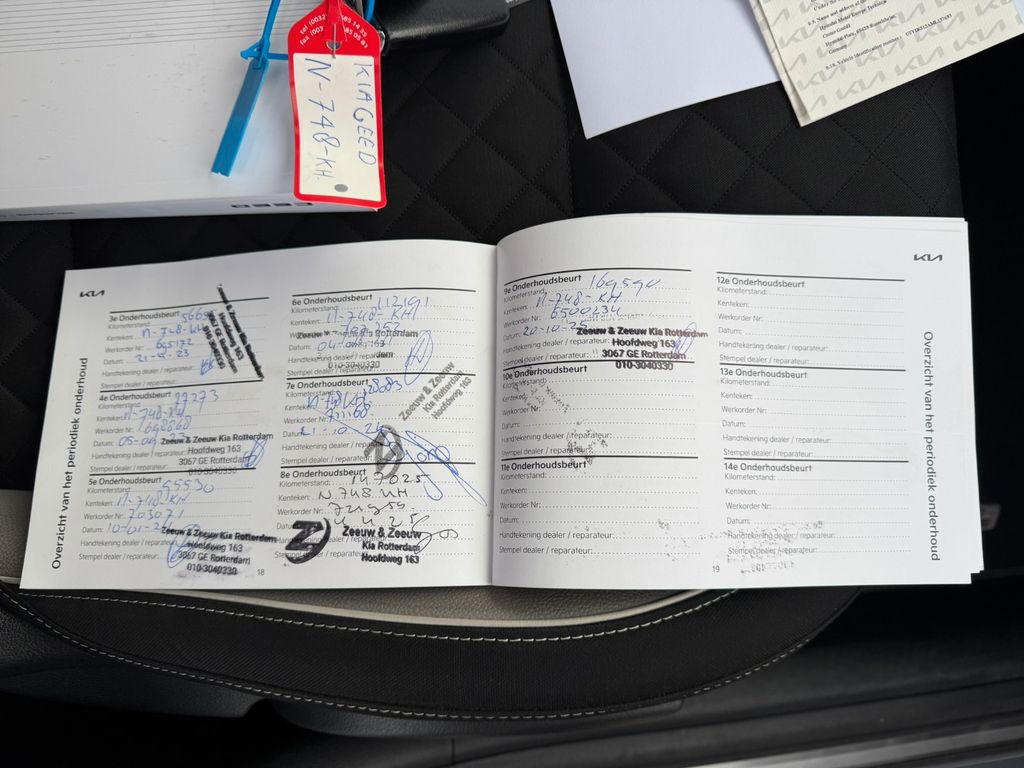 KIA CEED
N-748-KH.
CEED
8.9. Name and address of the
Hyundai Motor Europe Technical
Center GmbH
Hyundai-Platz, 65428 Rüsselsheim
Germany
KIA
Overzicht van het periodiek onderhoud
3e Onderhoudsbeurt
Kilometerstand:
Kenteken: N-748-KH
Werkorder Nr:
Datum: 21-2-23
Handtekening dealer / reparateur:
Stempel dealer / reparateur:
Zeeuw & Zeeuw Kia Rotterdam
Hoofdweg 163
3067 GE Rotterdam
010-3040330
4e Onderhoudsbeurt
Kilometerstand: 77273
Kenteken: N-748-KH
Werkorder Nr:
Datum:
Handtekening dealer / reparateur:
Stempel dealer / reparateur:
Zeeuw & Zeeuw Kia Rotterdam
Hoofdweg 163
3067 GE Rotterdam
010-3040330
5e Onderhoudsbeurt
Kilometerstand: 95530
Kenteken: N-748-KH
Werkorder Nr: 703071
Datum: 10-01-24
Handtekening dealer / reparateur:
Stempel dealer / reparateur:
Zeeuw & Zeeuw Kia Rotterdam
Hoofdweg 163
3067 GE Rotterdam
010-3040330
18
6e Onderhoudsbeurt
Kilometerstand: 112191
Kenteken: N-748-KH
Werkorder Nr:
Datum:
Handtekening dealer / reparateur:
Stempel dealer / reparateur:
Zeeuw & Zeeuw Kia Rotterdam
010-3040330
7e Onderhoudsbeurt
Kilometerstand:
Kenteken: N-748-KH
Werkorder Nr:
Datum: 21-10-24
Handtekening dealer / reparateur:
Stempel dealer / reparateur:
Zeeuw & Zeeuw
Kia Rotterdam
Hoofdweg 163
8e Onderhoudsbeurt
Kilometerstand: 147025
Kenteken: N 748 KH
Werkorder Nr:
Datum:
Handtekening dealer / reparateur:
Stempel dealer / reparateur:
Zeeuw & Zeeuw
Kia Rotterdam
Hoofdweg 163
9e Onderhoudsbeurt
Kilometerstand: 169590
Kenteken: N-748-KH
Werkorder Nr: 6500234
Datum: 20-10-25
Handtekening dealer / reparateur:
Stempel dealer / reparateur:
Zeeuw & Zeeuw Kia Rotterdam
Hoofdweg 163
3067 GE Rotterdam
010-3040330
10e Onderhoudsbeurt
Kilometerstand:
Kenteken:
Werkorder Nr:
Datum:
Handtekening dealer / reparateur:
Stempel dealer / reparateur:
11e Onderhoudsbeurt
Kilometerstand:
Kenteken:
Werkorder Nr:
Datum:
Handtekening dealer / reparateur:
Stempel dealer / reparateur:
19
KIA
12e Onderhoudsbeurt
Kilometerstand:
Kenteken:
Werkorder Nr:
Datum:
Handtekening dealer / reparateur:
Stempel dealer / reparateur:
13e Onderhoudsbeurt
Kilometerstand:
Kenteken:
Werkorder Nr:
Datum:
Handtekening dealer / reparateur:
Stempel dealer / reparateur:
14e Onderhoudsbeurt
Kilometerstand:
Kenteken:
Werkorder Nr:
Datum:
Handtekening dealer / reparateur:
Stempel dealer / reparateur:
Overzicht van het periodiek onderhoud